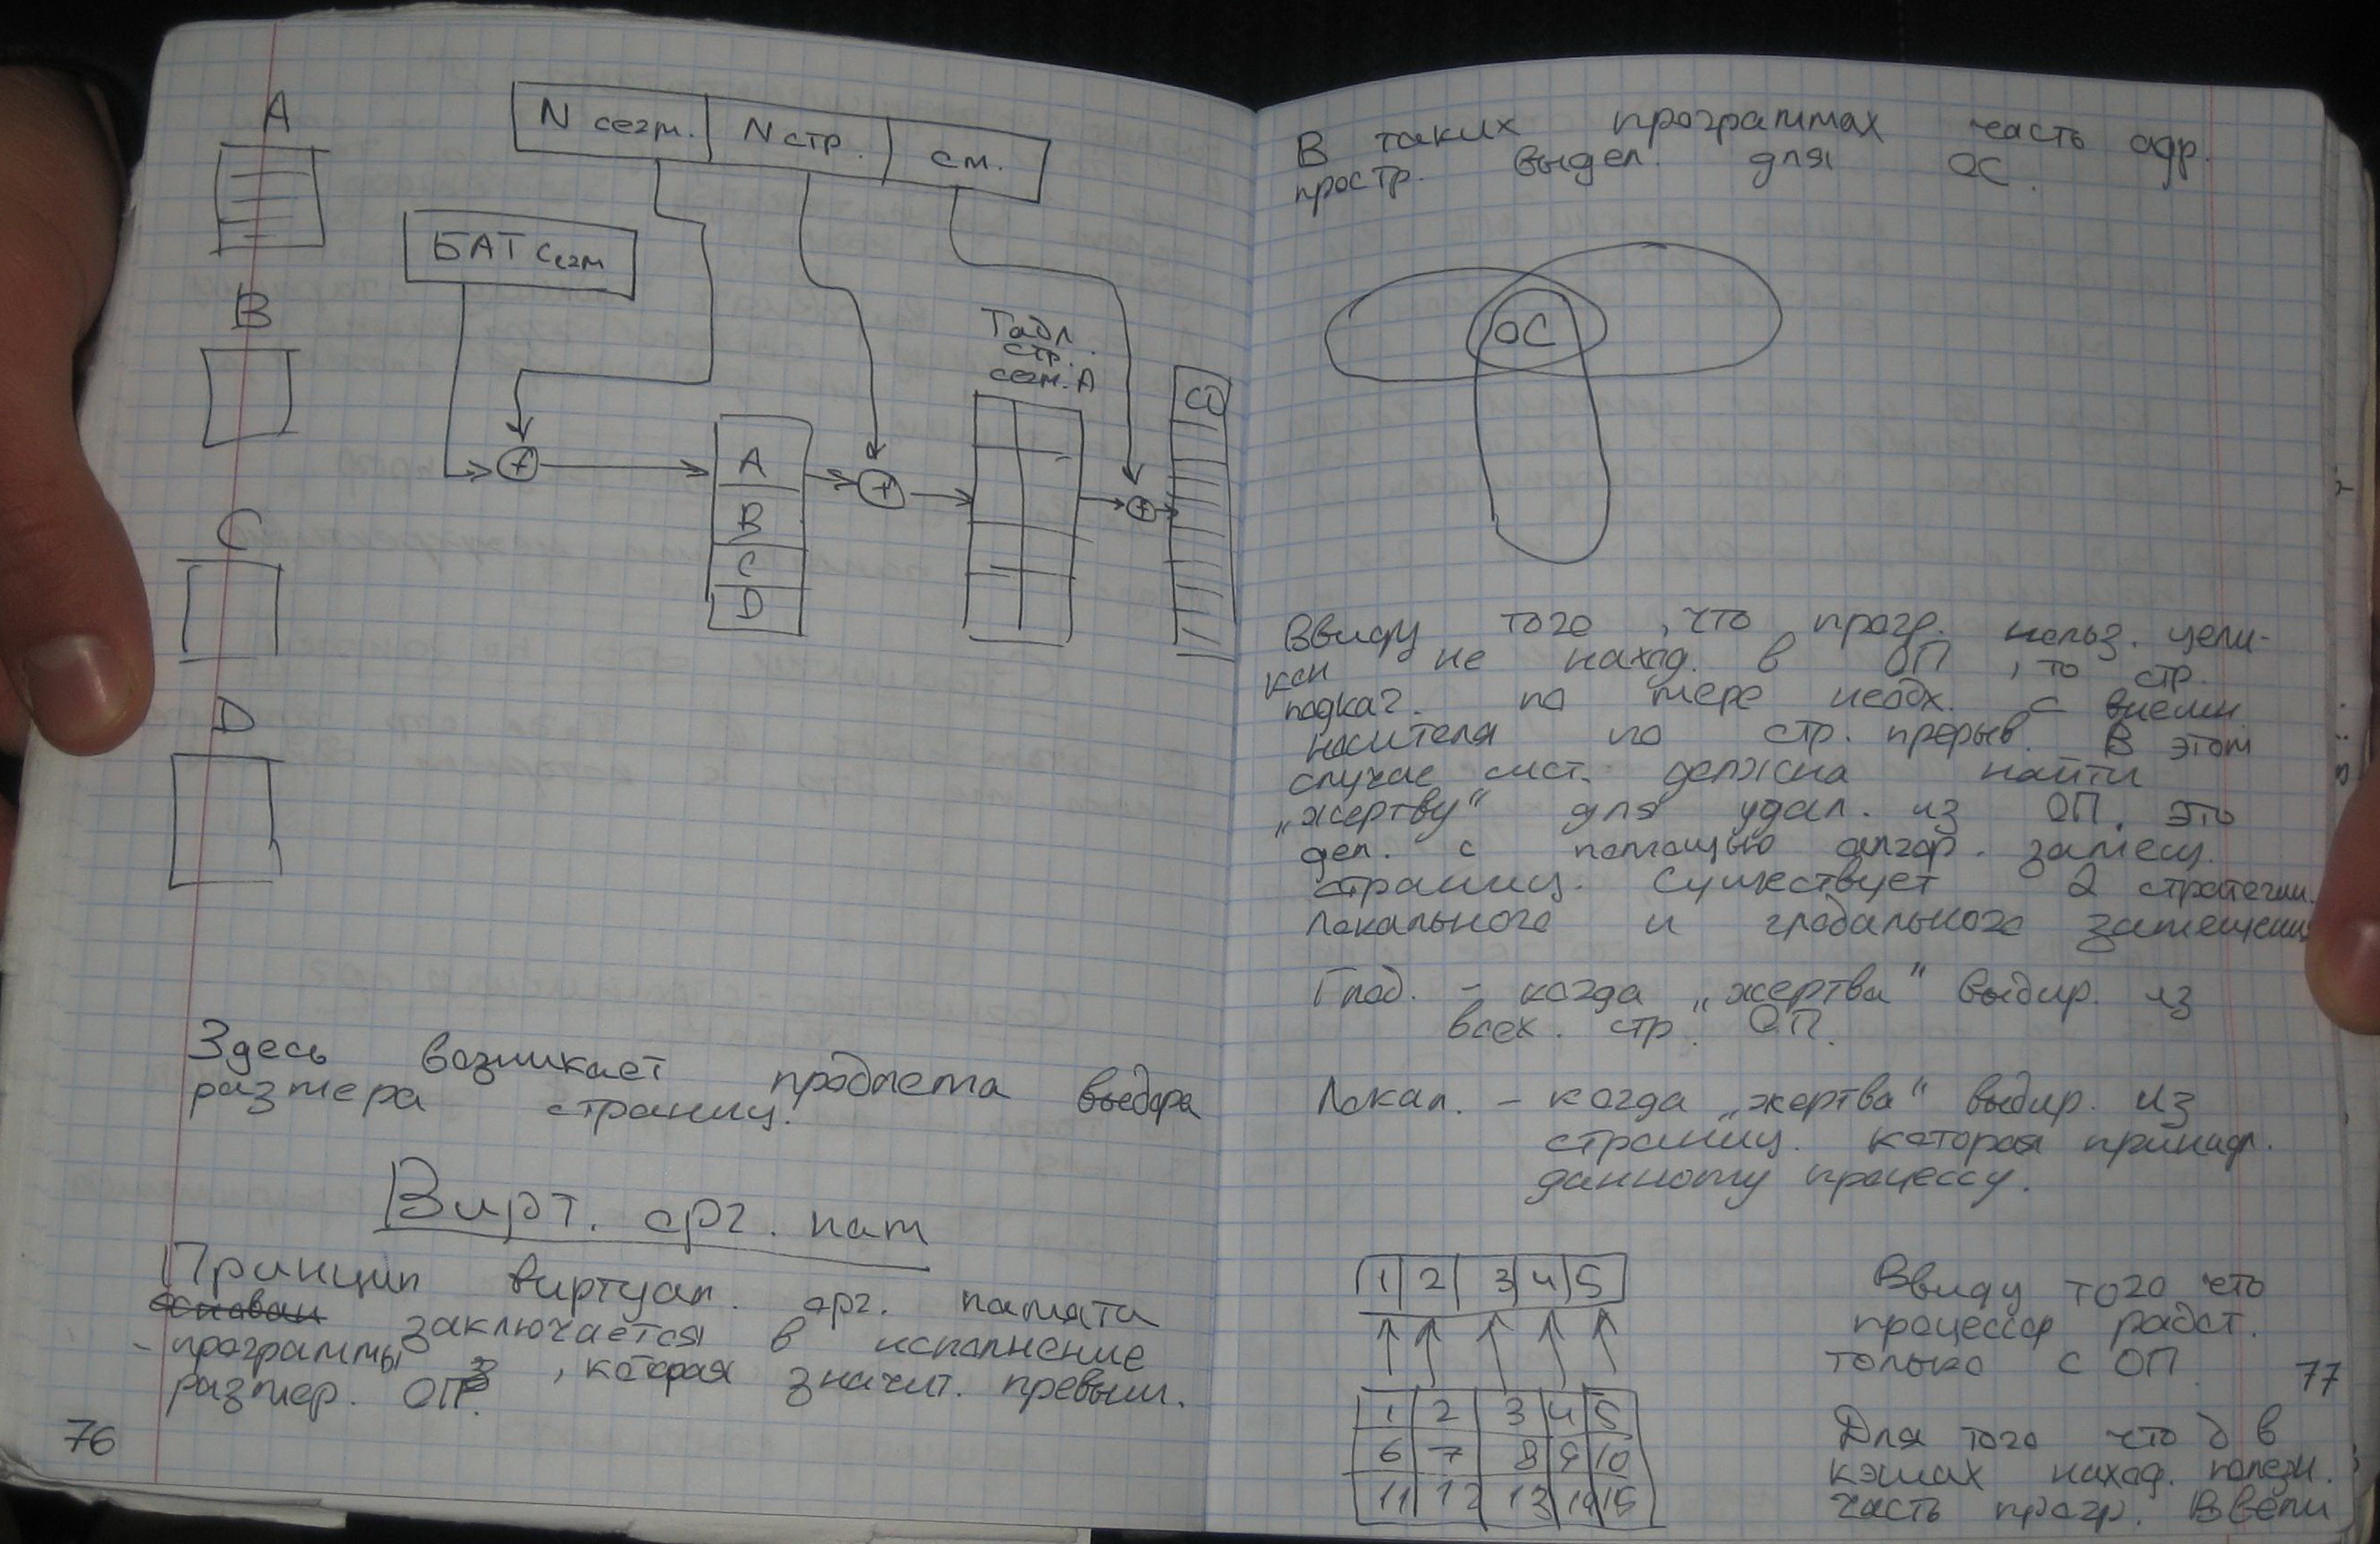 A
N сегм. N стр. см.
БАТ сегм
B
Табл.
стр.
сегм. A
A
B
C
D
C
D
Здесь возникает проблема выбора
размера страниц.
Вирт. орг. пам
Принцип виртуал. орг. памяти
основан заключается в исполнение
программы, которая значит. превыш.
размер. ОП.
76
В таких программах часть адр.
простр. выдел. для ОС.
ОС
Ввиду того, что прогр. польз. цели-
ком не наход. в ОП, то стр.
подкач. по мере необх. с внешн.
носителя по стр. прерыв. В этом
случае сист. должна найти
„жертву“ для удал. из ОП. Это
дел. с помощью алгор. замещ.
страниц. Существует 2 стратегии.
Локального и глобального замещения
Глоб. - когда „жертва“ выбир. из
всех. стр. ОП.
Локал. - когда „жертва“ выбир. из
страниц. которая принадл.
данному процессу.
1 2 3 4 5
1 2 3 4 5
6 7 8 9 10
11 12 13 14 15
Ввиду того что
процессор работ.
только с ОП
77
Для того что б в
кэшах наход. полезн.
часть прогр. Ввели